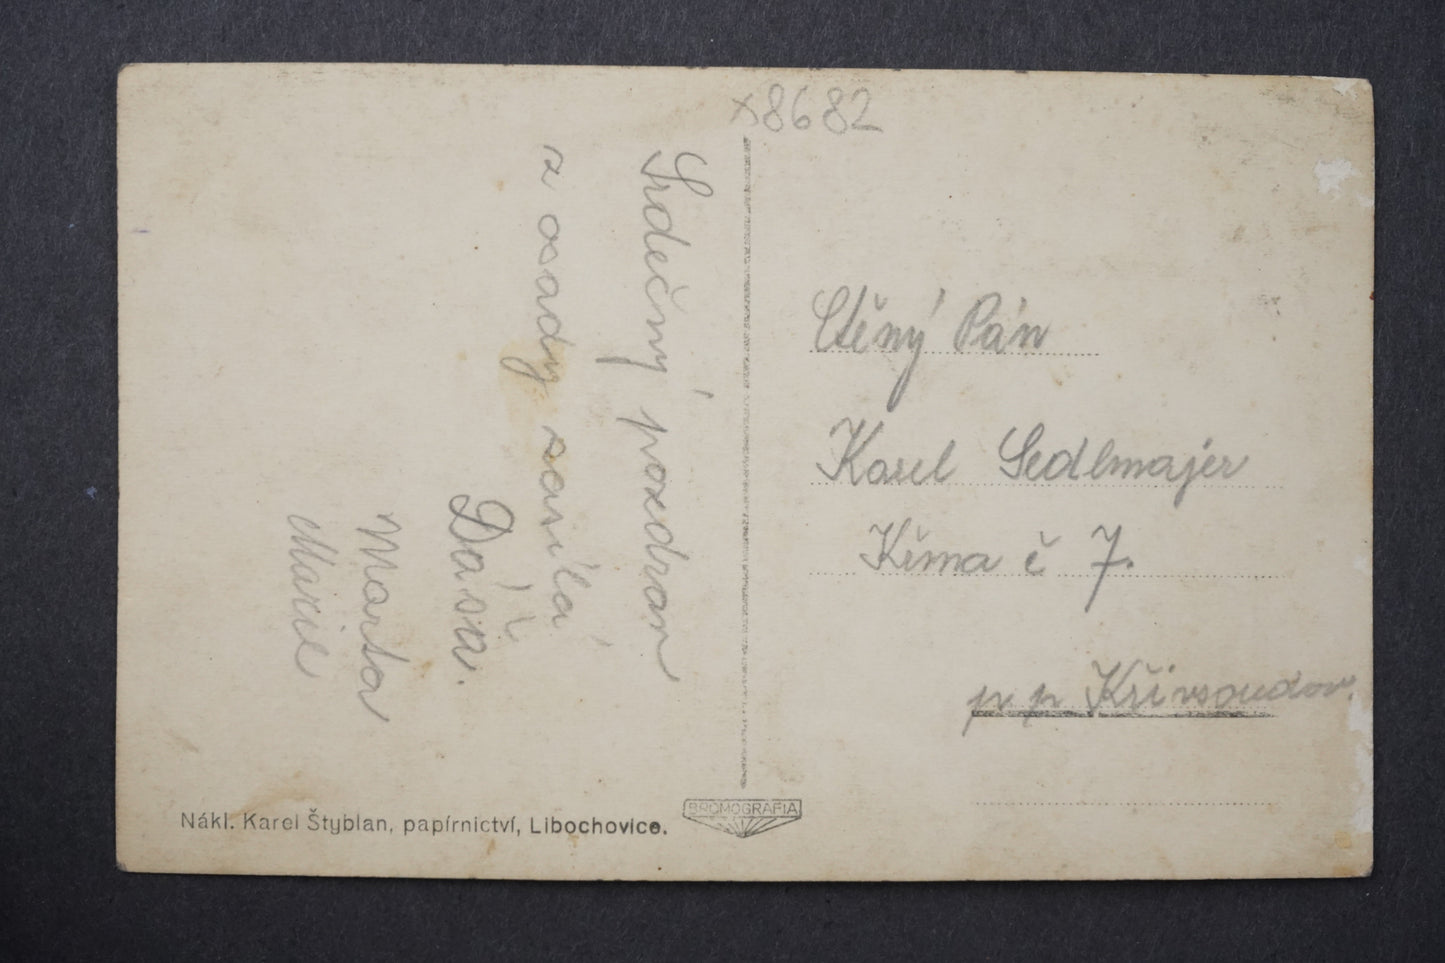 x8682
Srdečný pozdrav
z osady zasílá
Dáša.
Marta
Marie
Ctěný Pán
Karel Sedlmajer
Křma č 7.
p p Křivsoudov.
Nákl. Karel Štyblan, papírnictví, Libochovice.
BROMOGRAFIA